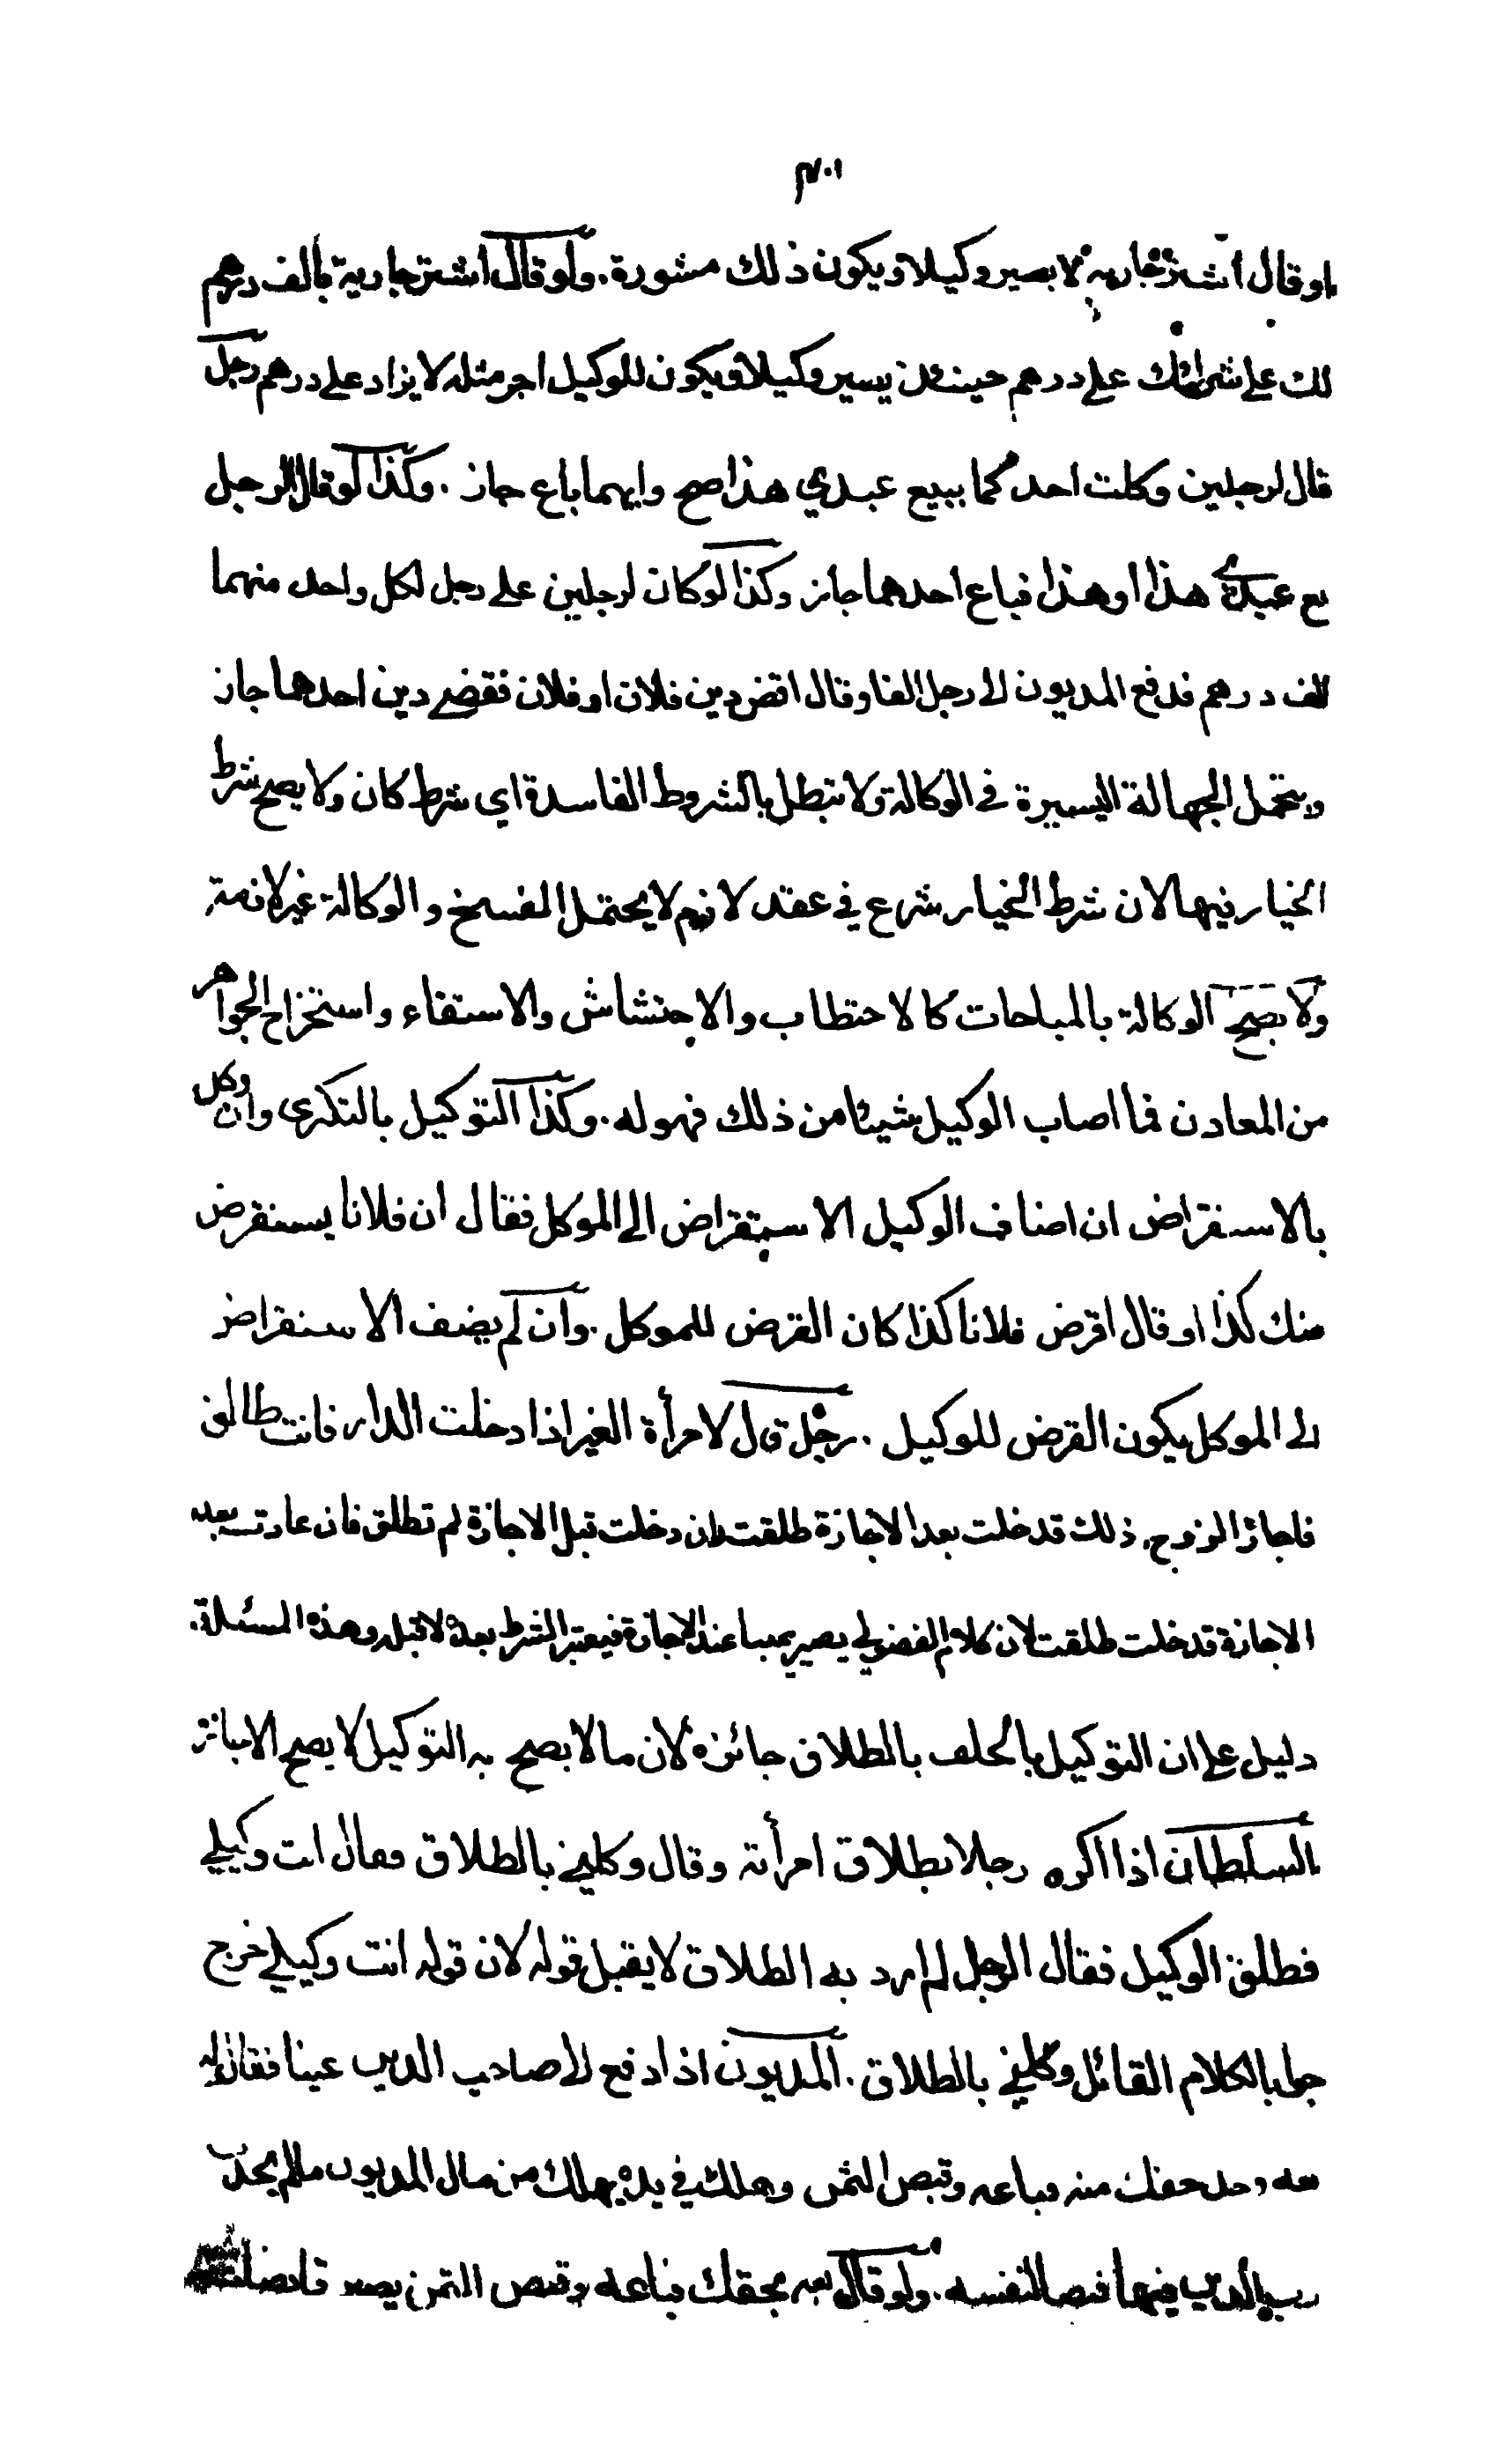 ٣٠١
او قال اشتر جارية لا يصير وكيلا ويكون ذلك مشورة. ولو قال اشتر جارية بالف درهم
لك على شرائك على درهم حينئذ يسير وكيلا ويكون للوكيل اجر مثله لا يزاد على درهم رجل
قال لرجلين وكلت احدكما ببيع عبدي هذا صح وايهما باع جاز. وكذا لو قال لرجل
بع عبدي هذا او هذا فباع احدهما جاز وكذا لو كان لرجلين على رجل لكل واحد منهما
الف درهم فدفع المديون الى رجل الفا وقال اقض دين فلان او فلان فقضى دين احدهما جاز
ويتحمل الجهالة اليسيرة في الوكالة ولا تبطل بالشروط الفاسدة اي شرط كان ولا يصح شرط
الخيار فيها لان شرط الخيار شرع في عقد لازم لا يحتمل الفسخ والوكالة غير لازمة
ولا تصح الوكالة بالمباحات كالاحتطاب والاحتشاش والاستقاء واستخراج الجواهر
من المعادن فما اصاب الوكيل شيئا من ذلك فهو له. وكذا التوكيل بالتكدي وان وكل
بالاستقراض ان اضاف الوكيل الاستقراض الى الموكل فقال ان فلانا يستقرض
منك كذا او قال اقرض فلانا كذا كان القرض للموكل. وان لم يضف الاستقراض
الى الموكل يكون القرض للوكيل. رجل قال لامرأة الغير اذا دخلت الدار فانت طالق
فاجاز الزوج ذلك فدخلت بعد الاجازة طلقت وان دخلت قبل الاجازة لم تطلق فان عادت بعد
الاجازة فدخلت طلقت لان كلام الفضولي يصير يمينا عند الاجازة فيعتبر الشرط بعده لا قبله وهذه المسئلة.
دليل على ان التوكيل بالحلف بالطلاق جائزه لان ما لا يصح به التوكيل لا يصح الاجازة
السلطان اذا اكره رجلا بطلاق امرأته وقال وكلني بالطلاق فقال انت وكيلي
فطلق الوكيل فقال الرجل لم ارد به الطلاق لا يقبل قوله لان قوله انت وكيلي خرج
جوابا لكلام القائل وكلني بالطلاق. المديون اذا دفع الى صاحب الدين عينا فقال له
بعه وخذ حقك منه فباعه وقبض الثمن وهلك في يده يهلك من مال المديون ما لم يحدث
رب الدين فيها قبضا لنفسه. ولو قال بعه بحقك فباعه وقبض الثمن يصير قابضا